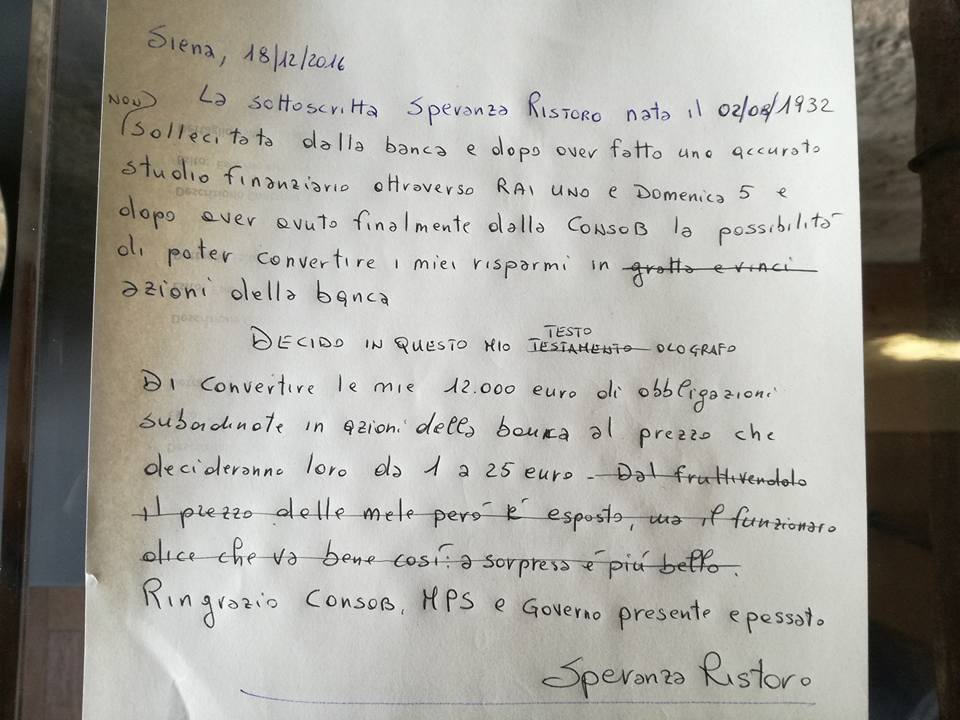 Siena, 18/12/2016
NON) La sottoscritta Speranza RISTORO nata il 02/08/1932
(sollecitata dalla banca e dopo aver fatto uno accurato
studio finanziario attraverso RAI UNO e Domenica 5 e
dopo aver avuto finalmente dalla CONSOB la possibilità
di poter convertire i miei risparmi in gratta e vinci
azioni della banca
DECIDO IN QUESTO MIO TESTAMENTO TESTO OLOGRAFO
DI convertire le mie 12.000 euro di obbligazioni
subordinate in azioni della banca al prezzo che
decideranno loro da 1 a 25 euro - Dal fruttivendolo
il prezzo delle mele però è esposto, ma il funzionaro
dice che va bene così: a sorpresa é più bello.
Ringrazio CONSOB, MPS e Governo presente e passato
Speranza Ristoro